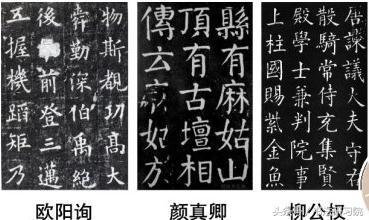 物斯覩功高大
舜勤深伯禹
前登三邁
五握機蹈矩乃
縣有麻姑山
頂有古壇相
傳云麻姑於
諫議大夫守右
散騎常侍充集賢
殿學士兼判院事
上柱國賜紫金魚
欧阳询
颜真卿
柳公权